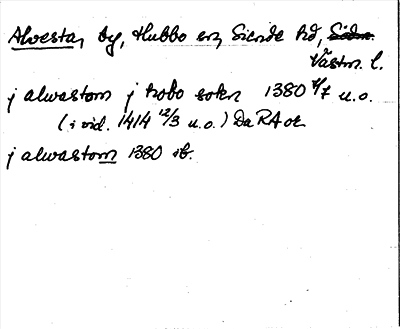 Alvesta, by, Hubbo sn, Siende hd, Södm.
Västm. l.
j alwastom j hobo sokn 1380 4/7 u.o.
(i vid. 1414 12/3 u.o.) Da RA or
j alwastom 1380 ib.